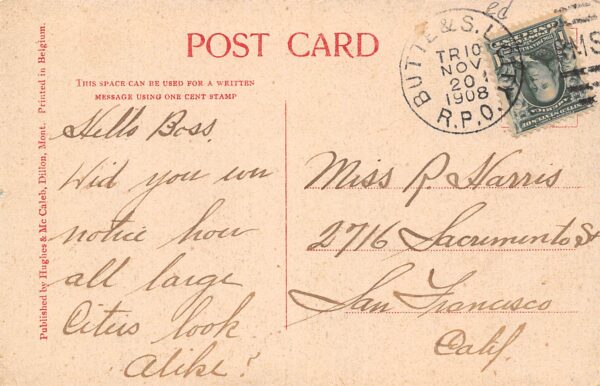 POST CARD
THIS SPACE CAN BE USED FOR A WRITTEN
MESSAGE USING ONE CENT STAMP
Published by Hughes & Mc Caleb, Dillon, Mont. Printed in Belgium.
Hello Boss.
Did you ever
notice how
all large
Cities look
alike?
BUTTE & S. L. CITY
TR10
NOV
20
1908
R.P.O.
RMS
Miss R. Harris
2716 Sacramento St
San Francisco
Calif.